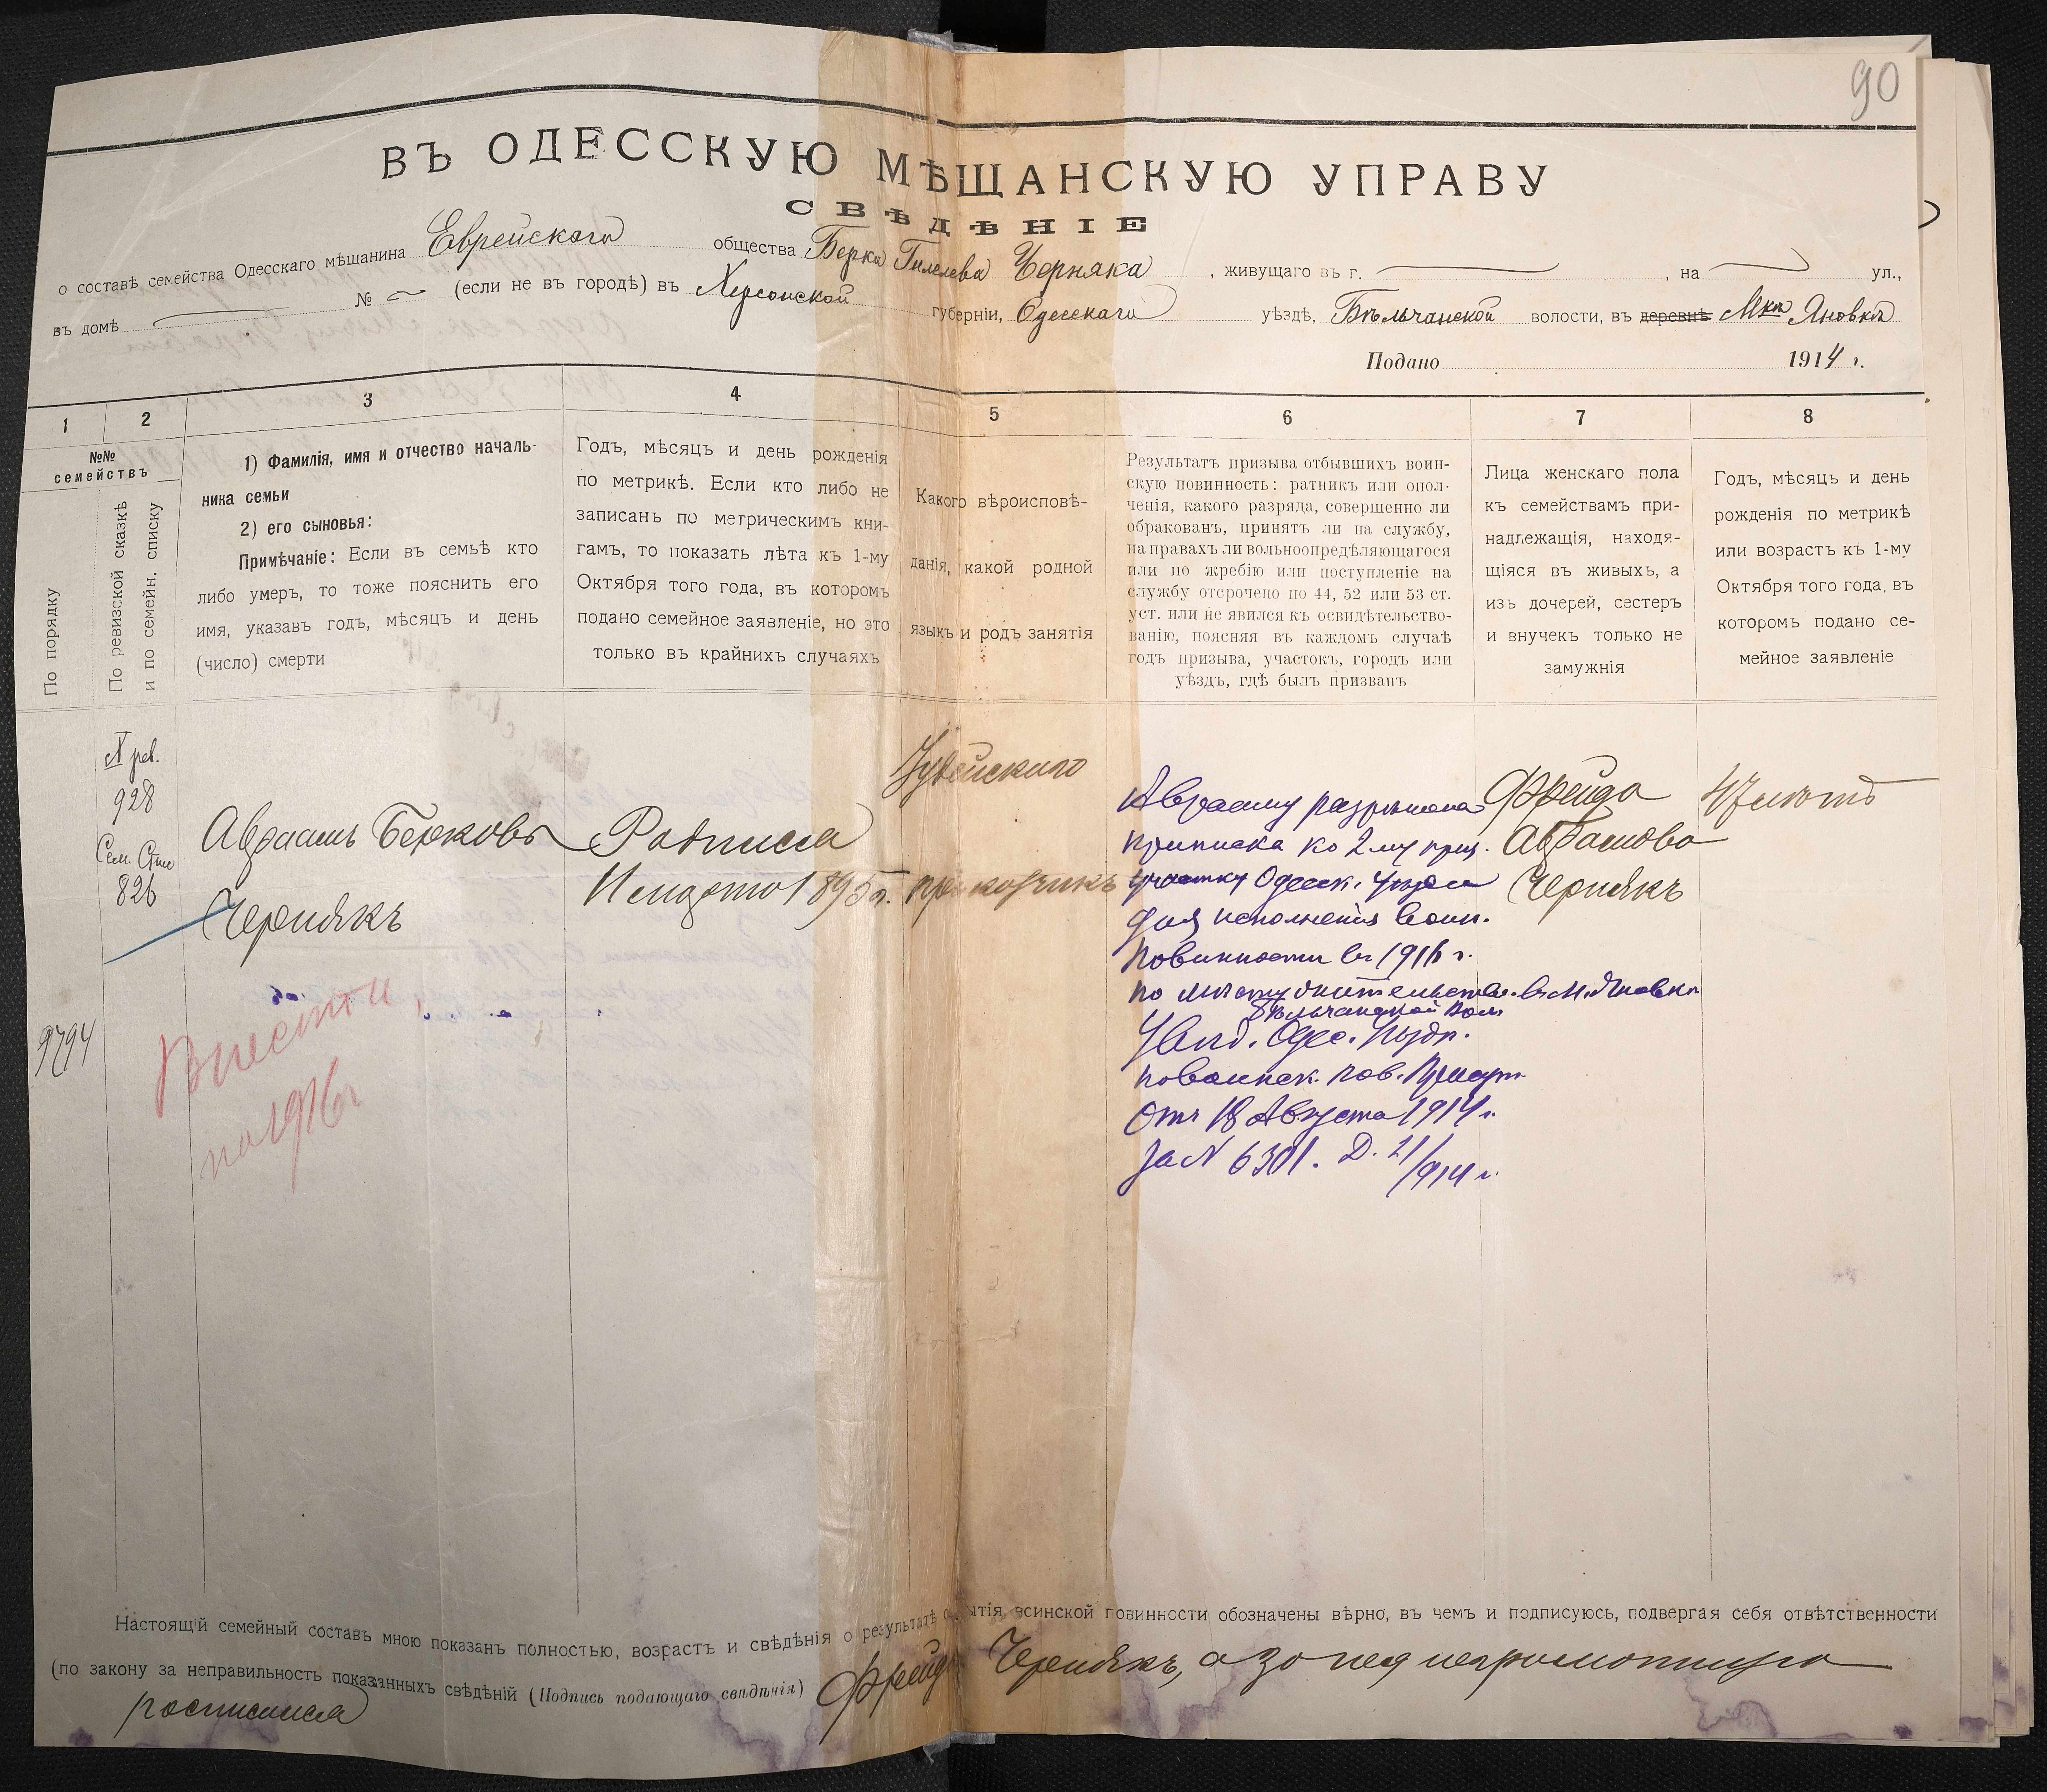 90
ВЪ ОДЕССКУЮ МѢЩАНСКУЮ УПРАВУ
СВѢДѢНІЕ
о составѣ семейства Одесскаго мѣщанина Еврейскаго общества Берка Гилелева Черняка, живущаго въ г. , на ул.,
въ домѣ № (если не въ городѣ) въ Херсонской губерніи, Одесскаго уѣздѣ, Бѣльчанской волости, въ деревнѣ Мкѣ Яновкѣ
Подано 1914 г.
1 2 3 4 5 6 7 8
№№
семействъ
По порядку
По ревизской сказкѣ
и по семейн. списку
1) Фамилія, имя и отчество началь-
ника семьи
2) его сыновья:
Примѣчаніе: Если въ семьѣ кто
либо умеръ, то тоже пояснить его
имя, указавъ годъ, мѣсяцъ и день
(число) смерти
Годъ, мѣсяцъ и день рожденія
по метрикѣ. Если кто либо не
записанъ по метрическимъ кни-
гамъ, то показать лѣта къ 1-му
Октября того года, въ которомъ
подано семейное заявленіе, но это
только въ крайнихъ случаяхъ
Какого вѣроисповѣ-
данія, какой родной
языкъ и родъ занятія
Результатъ призыва отбывшихъ воин-
скую повинность: ратникъ или опол-
ченія, какого разряда, совершенно ли
обракованъ, принятъ ли на службу,
на правахъ ли вольноопредѣляющагося
или по жребію или поступленіе на
службу отсрочено по 44, 52 или 53 ст.
уст. или не явился къ освидѣтельство-
ванію, поясняя въ каждомъ случаѣ
годъ призыва, участокъ, городъ или
уѣздъ, гдѣ былъ призванъ
Лица женскаго пола
къ семействамъ при-
надлежащія, находя-
щіяся въ живыхъ, а
изъ дочерей, сестеръ
и внучекъ только не
замужнія
Годъ, мѣсяцъ и день
рожденія по метрикѣ
или возрастъ къ 1-му
Октября того года, въ
которомъ подано се-
мейное заявленіе
№ рев.
928
Сем. Спис
826
9794
Авраамъ Берковъ
Чернякъ
Внести
по 1916 г
Родился
1895 г.
Іудейскаго
Аврааму разрѣшена
приписка ко 2му приз.
участку Одесск. уѣзда
для исполненія воин.
повинности въ 1916 г.
по мѣсту жительства въ М. Яновкѣ
Бѣльчанской Вол.
Увѣд. Одес. Уѣздн.
по воинск. пов. Присут.
отъ 18 Августа 1914 г.
за № 6301. Д. 21/914 г.
Фрейда
Абрамова
Чернякъ
47 лѣтъ
Настоящій семейный составъ мною показанъ полностью, возрастъ и свѣдѣнія о результатѣ отбытія воинской повинности обозначены вѣрно, въ чемъ и подписуюсь, подвергая себя отвѣтственности
(по закону за неправильность показанныхъ свѣдѣній (Подпись подающаго свѣдѣнія) Фрейда Чернякъ, а за нея неграмотную
росписался